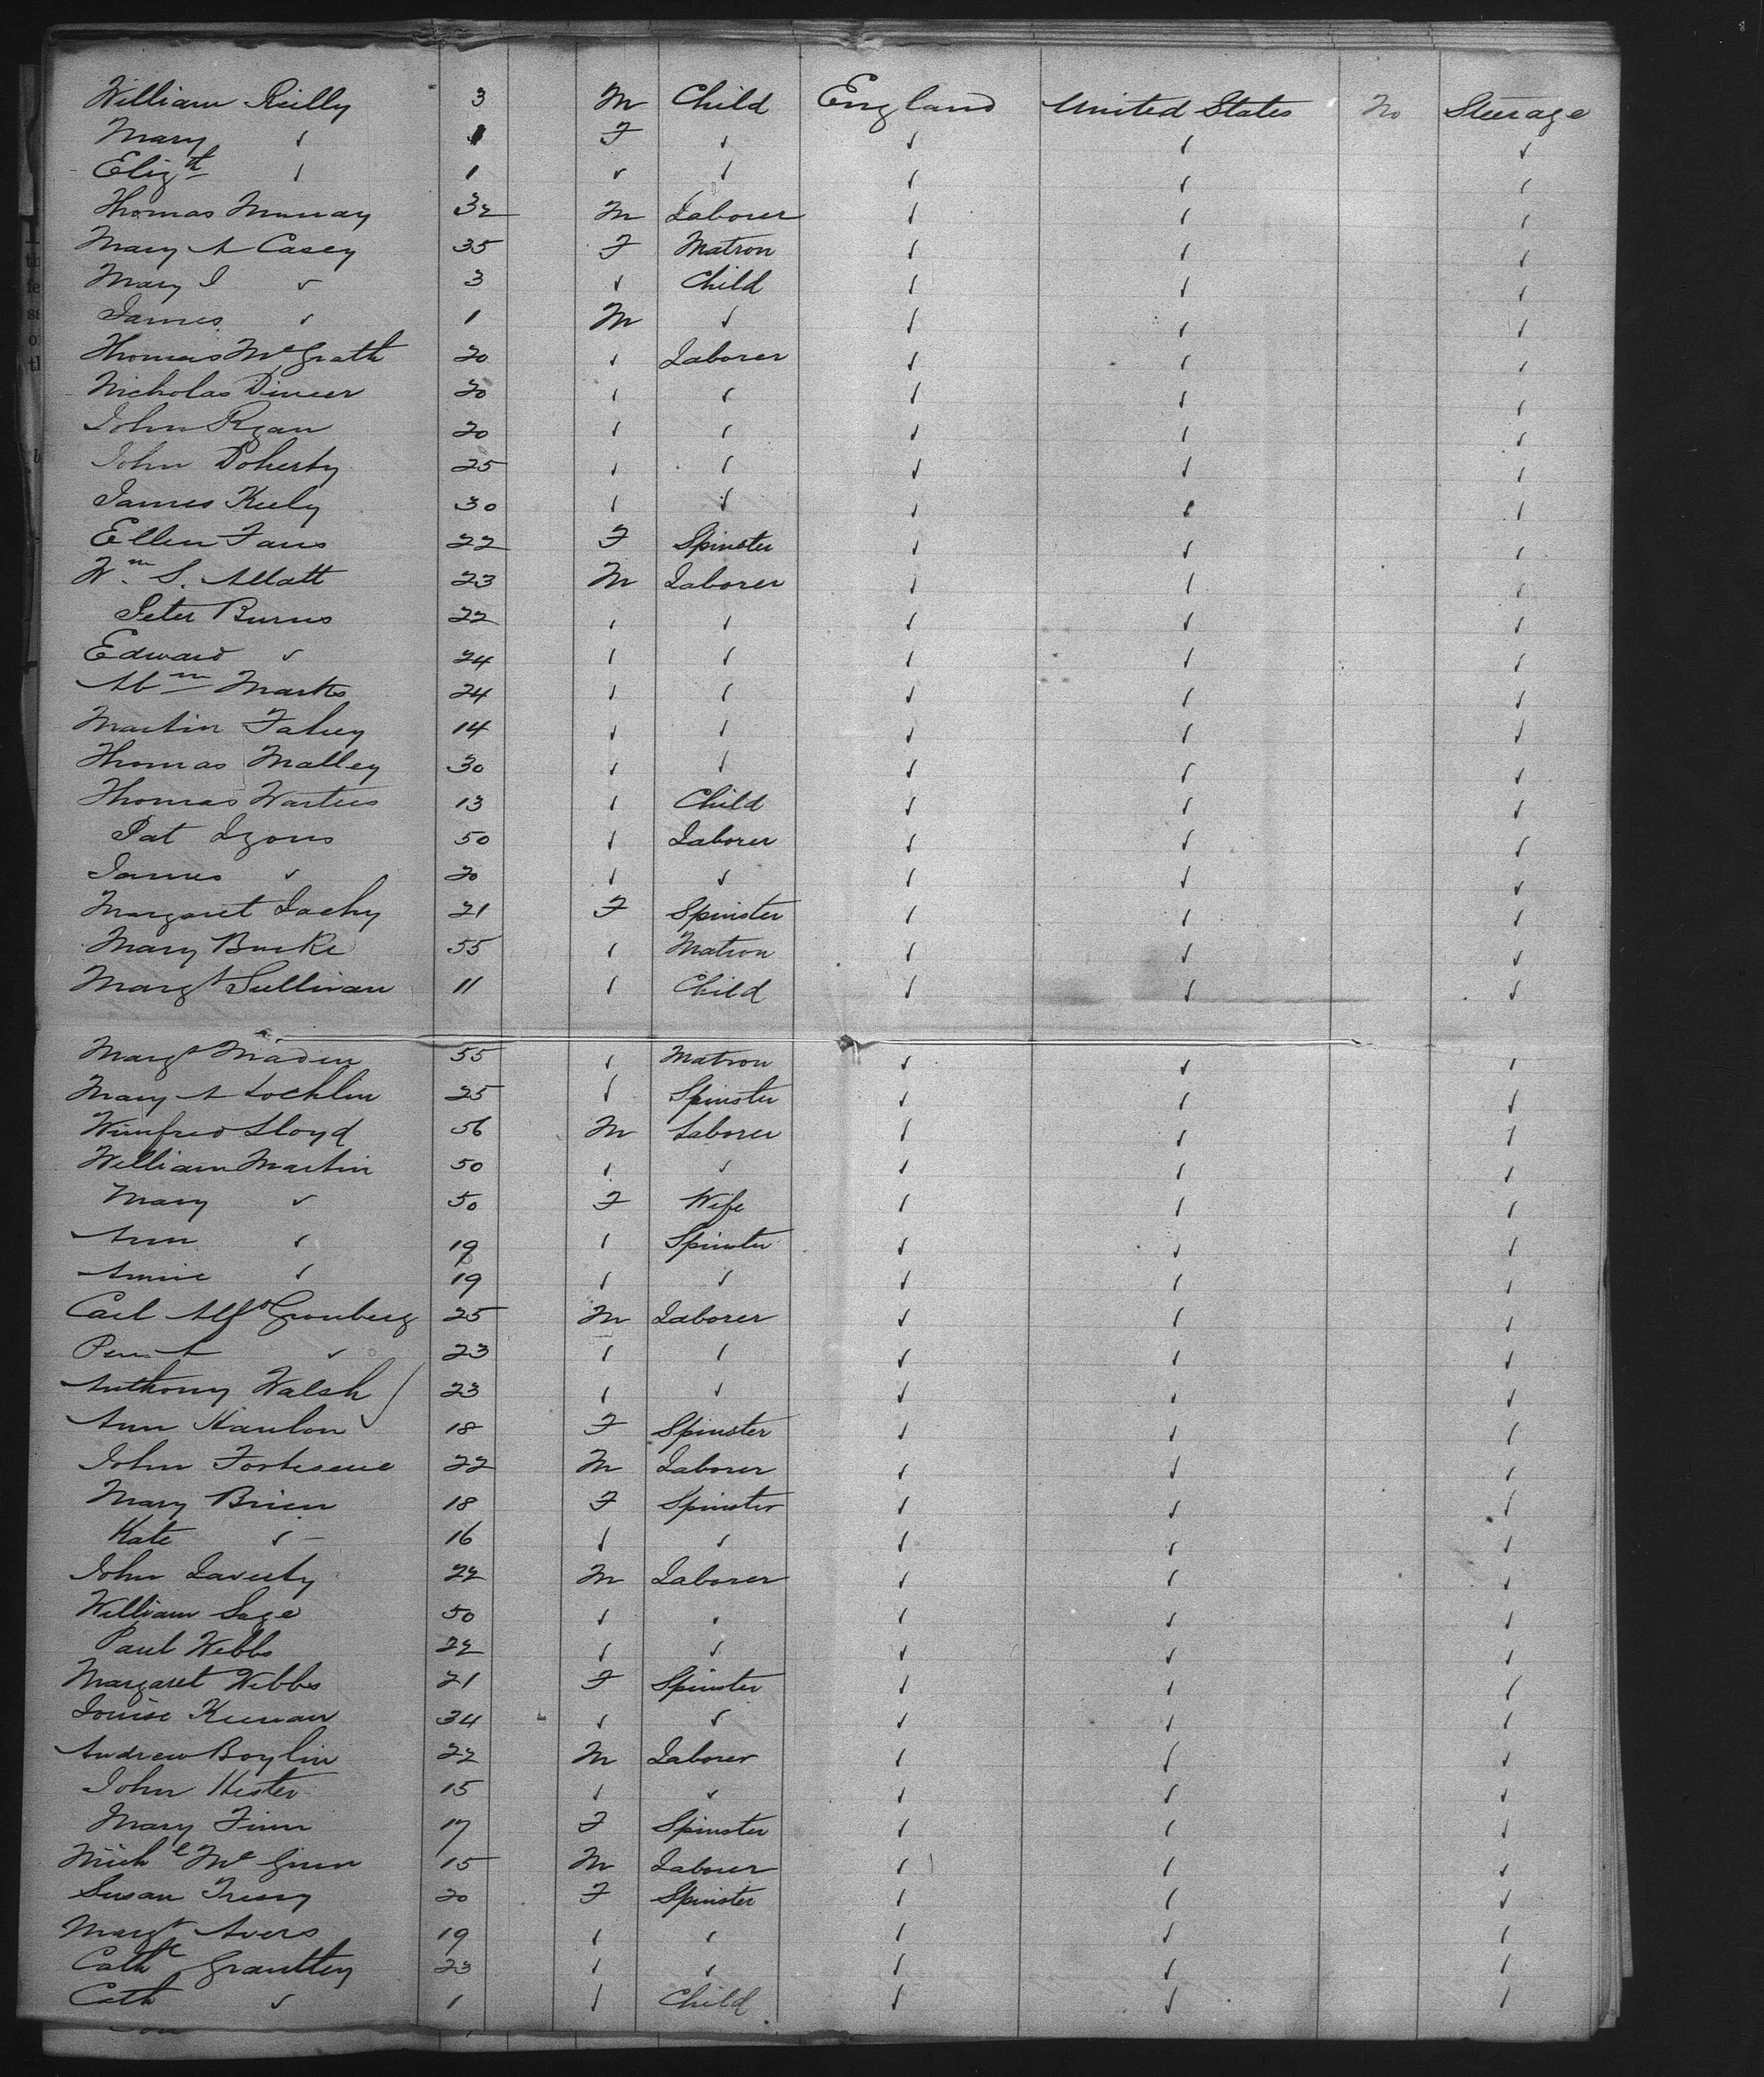 William Reilly 3 M Child England United States No Steerage
Mary ✓ 1 F ✓ ✓ ✓ ✓
Eliz th ✓ 1 ✓ ✓ ✓ ✓ ✓
Thomas Murray 32 M Laborer ✓ ✓ ✓
Mary A Casey 35 F Matron ✓ ✓ ✓
Mary J ✓ 3 ✓ Child ✓ ✓ ✓
James ✓ 1 M ✓ ✓ ✓ ✓
Thomas McGrath 20 ✓ Laborer ✓ ✓ ✓
Nicholas 20 ✓ ✓ ✓ ✓ ✓
John Ryan 20 ✓ ✓ ✓ ✓ ✓
John Doherty 25 ✓ ✓ ✓ ✓ ✓
James Keely 30 ✓ ✓ ✓ ✓ ✓
Ellen Faus 22 F Spinster ✓ ✓ ✓
Wm S. Allatt 23 M Laborer ✓ ✓ ✓
Peter Burns 22 ✓ ✓ ✓ ✓ ✓
Edward ✓ 24 ✓ ✓ ✓ ✓ ✓
Abm Marks 24 ✓ ✓ ✓ ✓ ✓
Martin Fahey 14 ✓ ✓ ✓ ✓ ✓
Thomas Malley 30 ✓ ✓ ✓ ✓ ✓
Thomas 13 ✓ Child ✓ ✓ ✓
Pat Lyons 50 ✓ Laborer ✓ ✓ ✓
James ✓ 20 ✓ ✓ ✓ ✓ ✓
Margaret Lachy 21 F Spinster ✓ ✓ ✓
Mary Burke 55 ✓ Matron ✓ ✓ ✓
Margt Sullivan 11 ✓ Child ✓ ✓ ✓
Margt Maden 55 ✓ Matron ✓ ✓ ✓
Mary A Lochlin 25 ✓ Spinster ✓ ✓ ✓
Winifred Lloyd 56 M Laborer ✓ ✓ ✓
William Martin 50 ✓ ✓ ✓ ✓ ✓
Mary ✓ 50 F Wife ✓ ✓ ✓
Ann ✓ 19 ✓ Spinster ✓ ✓ ✓
Annie ✓ 19 ✓ ✓ ✓ ✓ ✓
Carl Alfd Gronberg 25 M Laborer ✓ ✓ ✓
✓ 23 ✓ ✓ ✓ ✓ ✓
Anthony Walsh 23 ✓ ✓ ✓ ✓ ✓
Ann Hanlon 18 F Spinster ✓ ✓ ✓
John Fortescue 22 M Laborer ✓ ✓ ✓
Mary Brien 18 F Spinster ✓ ✓ ✓
Kate ✓ 16 ✓ ✓ ✓ ✓ ✓
John Laverty 22 M Laborer ✓ ✓ ✓
William Sage 50 ✓ ✓ ✓ ✓ ✓
Paul Webbs 22 ✓ ✓ ✓ ✓ ✓
Margaret Webbs 21 F Spinster ✓ ✓ ✓
Louise Keenan 34 ✓ ✓ ✓ ✓ ✓
Andrew Boylin 22 M Laborer ✓ ✓ ✓
John Hester 15 ✓ ✓ ✓ ✓ ✓
Mary Finn 17 F Spinster ✓ ✓ ✓
Michl McGinn 15 M Laborer ✓ ✓ ✓
Susan 20 F Spinster ✓ ✓ ✓
Margt Avers 19 ✓ ✓ ✓ ✓ ✓
Cathe Grantley 23 ✓ ✓ ✓ ✓ ✓
Cath ✓ 1 ✓ Child ✓ ✓ ✓